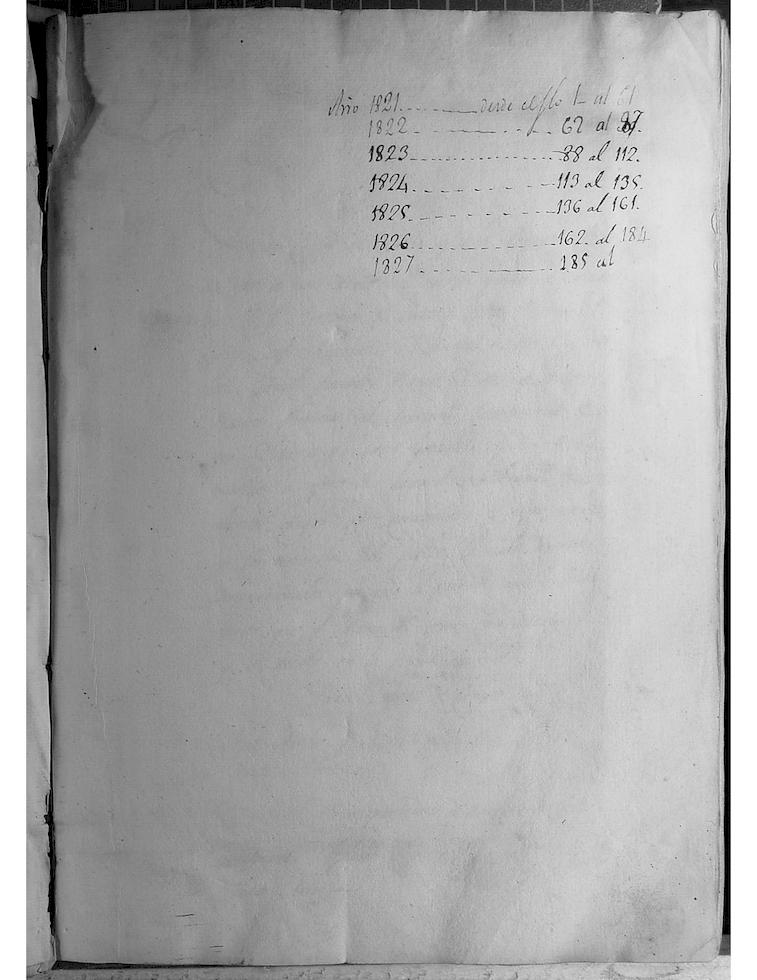 Año 1821......______desde el flo 1_ al 61
1822.. - - - - - - - . - . . 62 al 87.
1823........................ 88 al 112.
1824. . - - - - - - - - -113 al 135.
1825. . - - - - - - - - -136 al 161.
1826........................162. al 184
1827 . - - - - - - - - . . . . 185 al